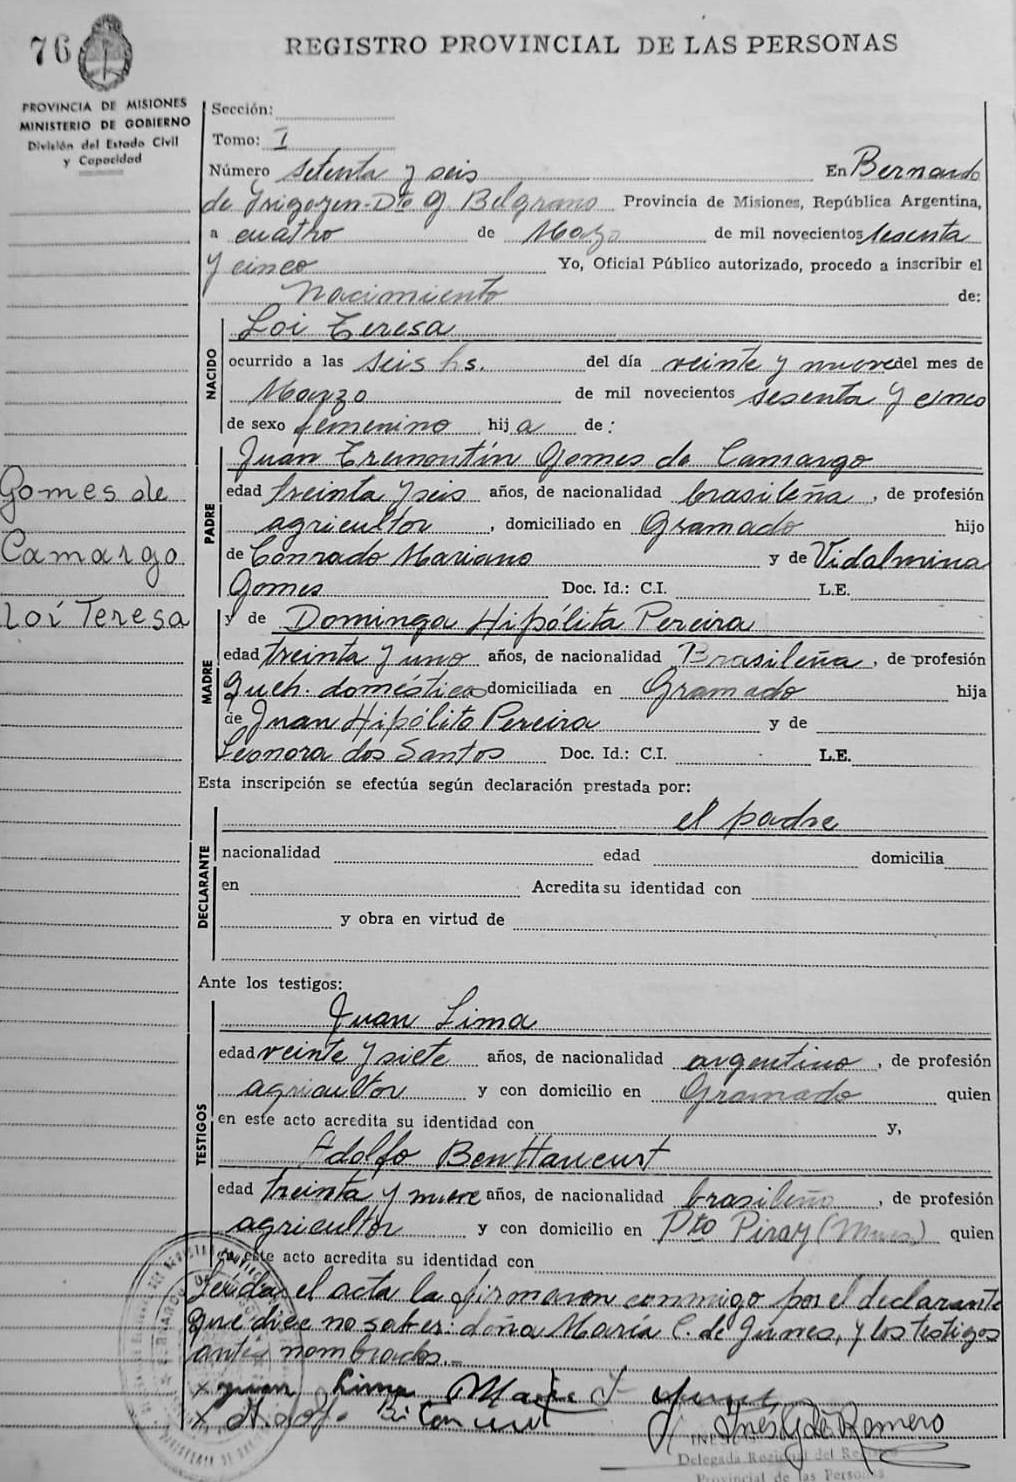 76
REGISTRO PROVINCIAL DE LAS PERSONAS
PROVINCIA DE MISIONES
MINISTERIO DE GOBIERNO
División del Estado Civil
y Capacidad
Sección:
Tomo: I
Número setenta y seis En Bernardo
de Irigoyen-Dto G. Belgrano Provincia de Misiones, República Argentina,
a cuatro de Mayo de mil novecientos sesenta
y cinco Yo, Oficial Público autorizado, procedo a inscribir el
Nacimiento de:
NACIDO
Loi Teresa
ocurrido a las seis hs. del día veinte y nueve del mes de
Marzo de mil novecientos sesenta y cinco
de sexo femenino hija de:
Gomes de
Camargo
Loí Teresa
PADRE
Juan Tremontín Gomes de Camargo
edad treinta y seis años, de nacionalidad brasileña, de profesión
agricultor, domiciliado en Gramado hijo
de Conrado Mariano y de Vidalmina
Gomes Doc. Id.: C.I. L.E.
MADRE
y de Dominga Hipólita Pereira
edad treinta y uno años, de nacionalidad Brasileña, de profesión
Queh. domésticos domiciliada en Gramado hija
de Juan Hipólito Pereira y de
Leonora dos Santos Doc. Id.: C.I. L.E.
Esta inscripción se efectúa según declaración prestada por:
DECLARANTE
el padre
nacionalidad edad domicilia
en Acredita su identidad con
y obra en virtud de
Ante los testigos:
TESTIGOS
Juan Lima
edad veinte y siete años, de nacionalidad argentino, de profesión
agricultor y con domicilio en Gramado quien
en este acto acredita su identidad con y,
Adolfo
edad treinta y nueve años, de nacionalidad brasileño, de profesión
agricultor y con domicilio en Pto Piray quien
en este acto acredita su identidad con
Leída el acta la firmaron conmigo por el declarante
que dice no saber: doña María C. de, y los testigos
antes nombrados.-
x Juan Lima
x
Inés G de Romero
Delegada del
Provincial de las Personas